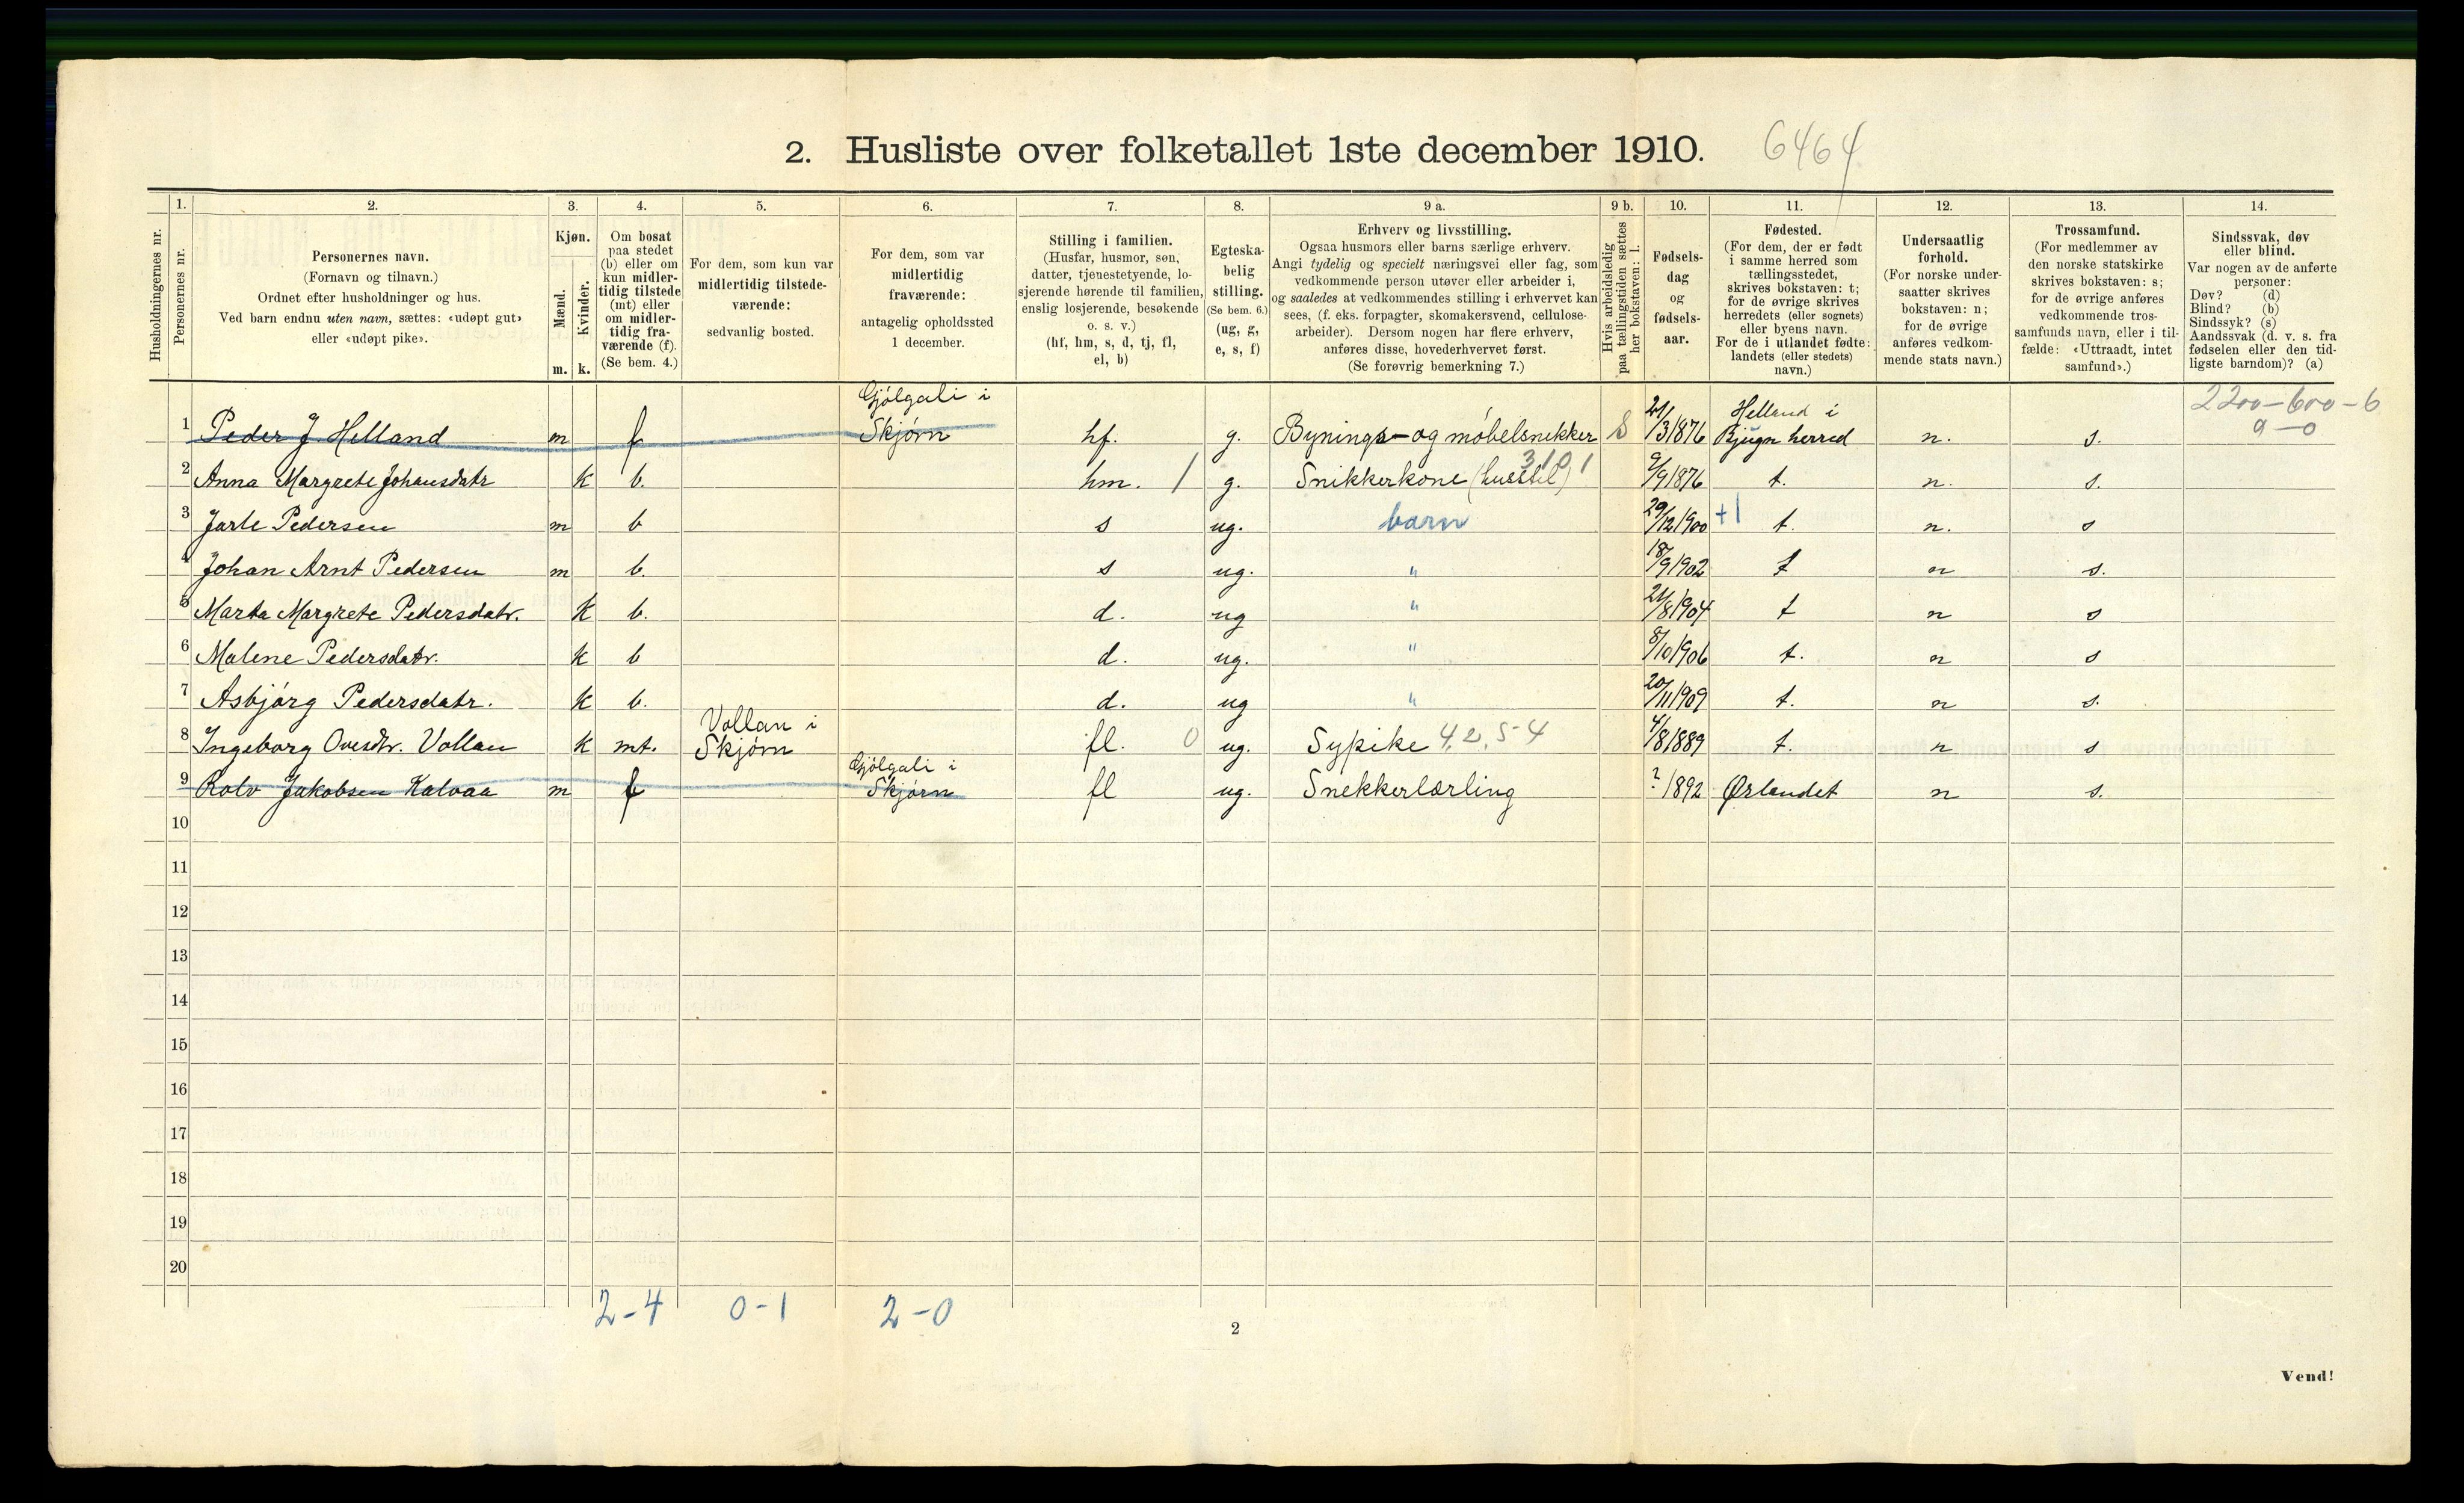 2. Husliste over folketallet 1ste december 1910. 6464
Husholdningernes nr.
1.
Personernes nr.
2.
Personernes navn.
(Fornavn og tilnavn.)
Ordnet efter husholdninger og hus.
Ved barn endnu uten navn, sættes: «udøpt gut»
eller «udøpt pike».
3.
Kjøn.
Mænd.
Kvinder.
m. k.
4.
Om bosat
paa stedet
(b) eller om
kun midler-
tidig tilstede
(mt) eller
om midler-
tidig fra-
værende (f).
(Se bem. 4.)
5.
For dem, som kun var
midlertidig tilstede-
værende:
sedvanlig bosted.
6.
For dem, som var
midlertidig
fraværende:
antagelig opholdssted
1 december.
7.
Stilling i familien.
(Husfar, husmor, søn,
datter, tjenestetyende, lo-
sjerende hørende til familien,
enslig losjerende, besøkende
o. s. v.)
(hf, hm, s, d, tj, fl,
el, b)
8.
Egteska-
belig
stilling.
(Se bem. 6.)
(ug, g,
e, s, f)
9 a.
Erhverv og livsstilling.
Ogsaa husmors eller barns særlige erhverv.
Angi tydelig og specielt næringsvei eller fag, som
vedkommende person utøver eller arbeider i,
og saaledes at vedkommendes stilling i erhvervet kan
sees, (f. eks. forpagter, skomakersvend, cellulose-
arbeider). Dersom nogen har flere erhverv,
anføres disse, hovederhvervet først.
(Se forøvrig bemerkning 7.)
9 b.
Hvis arbeidsledig
paa tællingstiden sættes
her bokstaven: l.
10.
Fødsels-
dag
og
fødsels-
aar.
11.
Fødested.
(For dem, der er født
i samme herred som
tællingsstedet,
skrives bokstaven: t;
for de øvrige skrives
herredets (eller sognets)
eller byens navn.
For de i utlandet fødte:
landets (eller stedets)
navn.)
12.
Undersaatlig
forhold.
(For norske under-
saatter skrives
bokstaven: n;
for de øvrige
anføres vedkom-
mende stats navn.)
13.
Trossamfund.
(For medlemmer av
den norske statskirke
skrives bokstaven: s;
for de øvrige anføres
vedkommende tros-
samfunds navn, eller i til-
fælde: «Uttraadt, intet
samfund».)
14.
Sindssvak, døv
eller blind.
Var nogen av de anførte
personer:
Døv? (d)
Blind? (b)
Sindssyk? (s)
Aandssvak (d. v. s. fra
fødselen eller den tid-
ligste barndom)? (a)
Gjölgali i Helland i 2200-600-6
1 Peder J. Helland m f Skjörn hf. g. Bynings- og möbelsnekker S 21/3 1876 Bjugn herred n. s. a-0
2 Anna Margrete Johansdatr k b. hm. 1 g. Snikkerkone (husstel) 3101 9/9 1876 t. n. s.
3 Jarle Pedersen m b s ug. barn 29/12 1900 +1 t. n. s
4 Johan Arnt Pedersen m b. s ug. " 18/9 1902 t n s.
5 Marta Margrete Pedersdatr. k b. d. ug " 21/8 1904 t n s
6 Malene Pedersdatr. k b d. ug. " 8/10 1906 t. n s
7 Asbjörg Pedersdatr. k b. d. ug " 20/11 1909 t. n s.
Vollan i
8 Ingeborg Ovesdtr. Vollan k mt. Skjörn fl. 0 ug. Sypike 4,2,5-4 4/8 1889 t. n s
Gjölgali i
9 Rolv Jakobsen Kalvaa m f Skjörn fl ug. Snekkerlærling ? 1892 Ørlandet n s.
10
11
12
13
14
15
16
17
18
19
20
2-4 0-1 2-0
2
Vend!